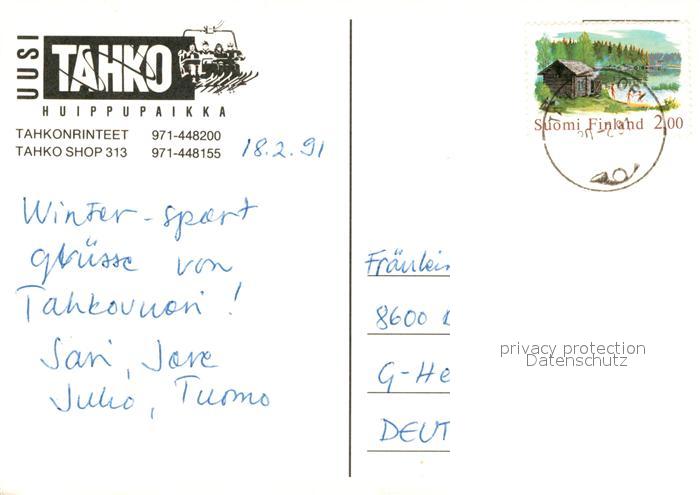 UUSI
TAHKO
HUIPPUPAIKKA
TAHKONRINTEET 971-448200
TAHKO SHOP 313 971-448155
18.2.91
Winter-sport
grüsse von
Tahkovuori!
Sari, Jore
Juho, Tuomo
Suomi Finland 2,00
Fräulein
8600
G-He
DEUT
privacy protection
Datenschutz